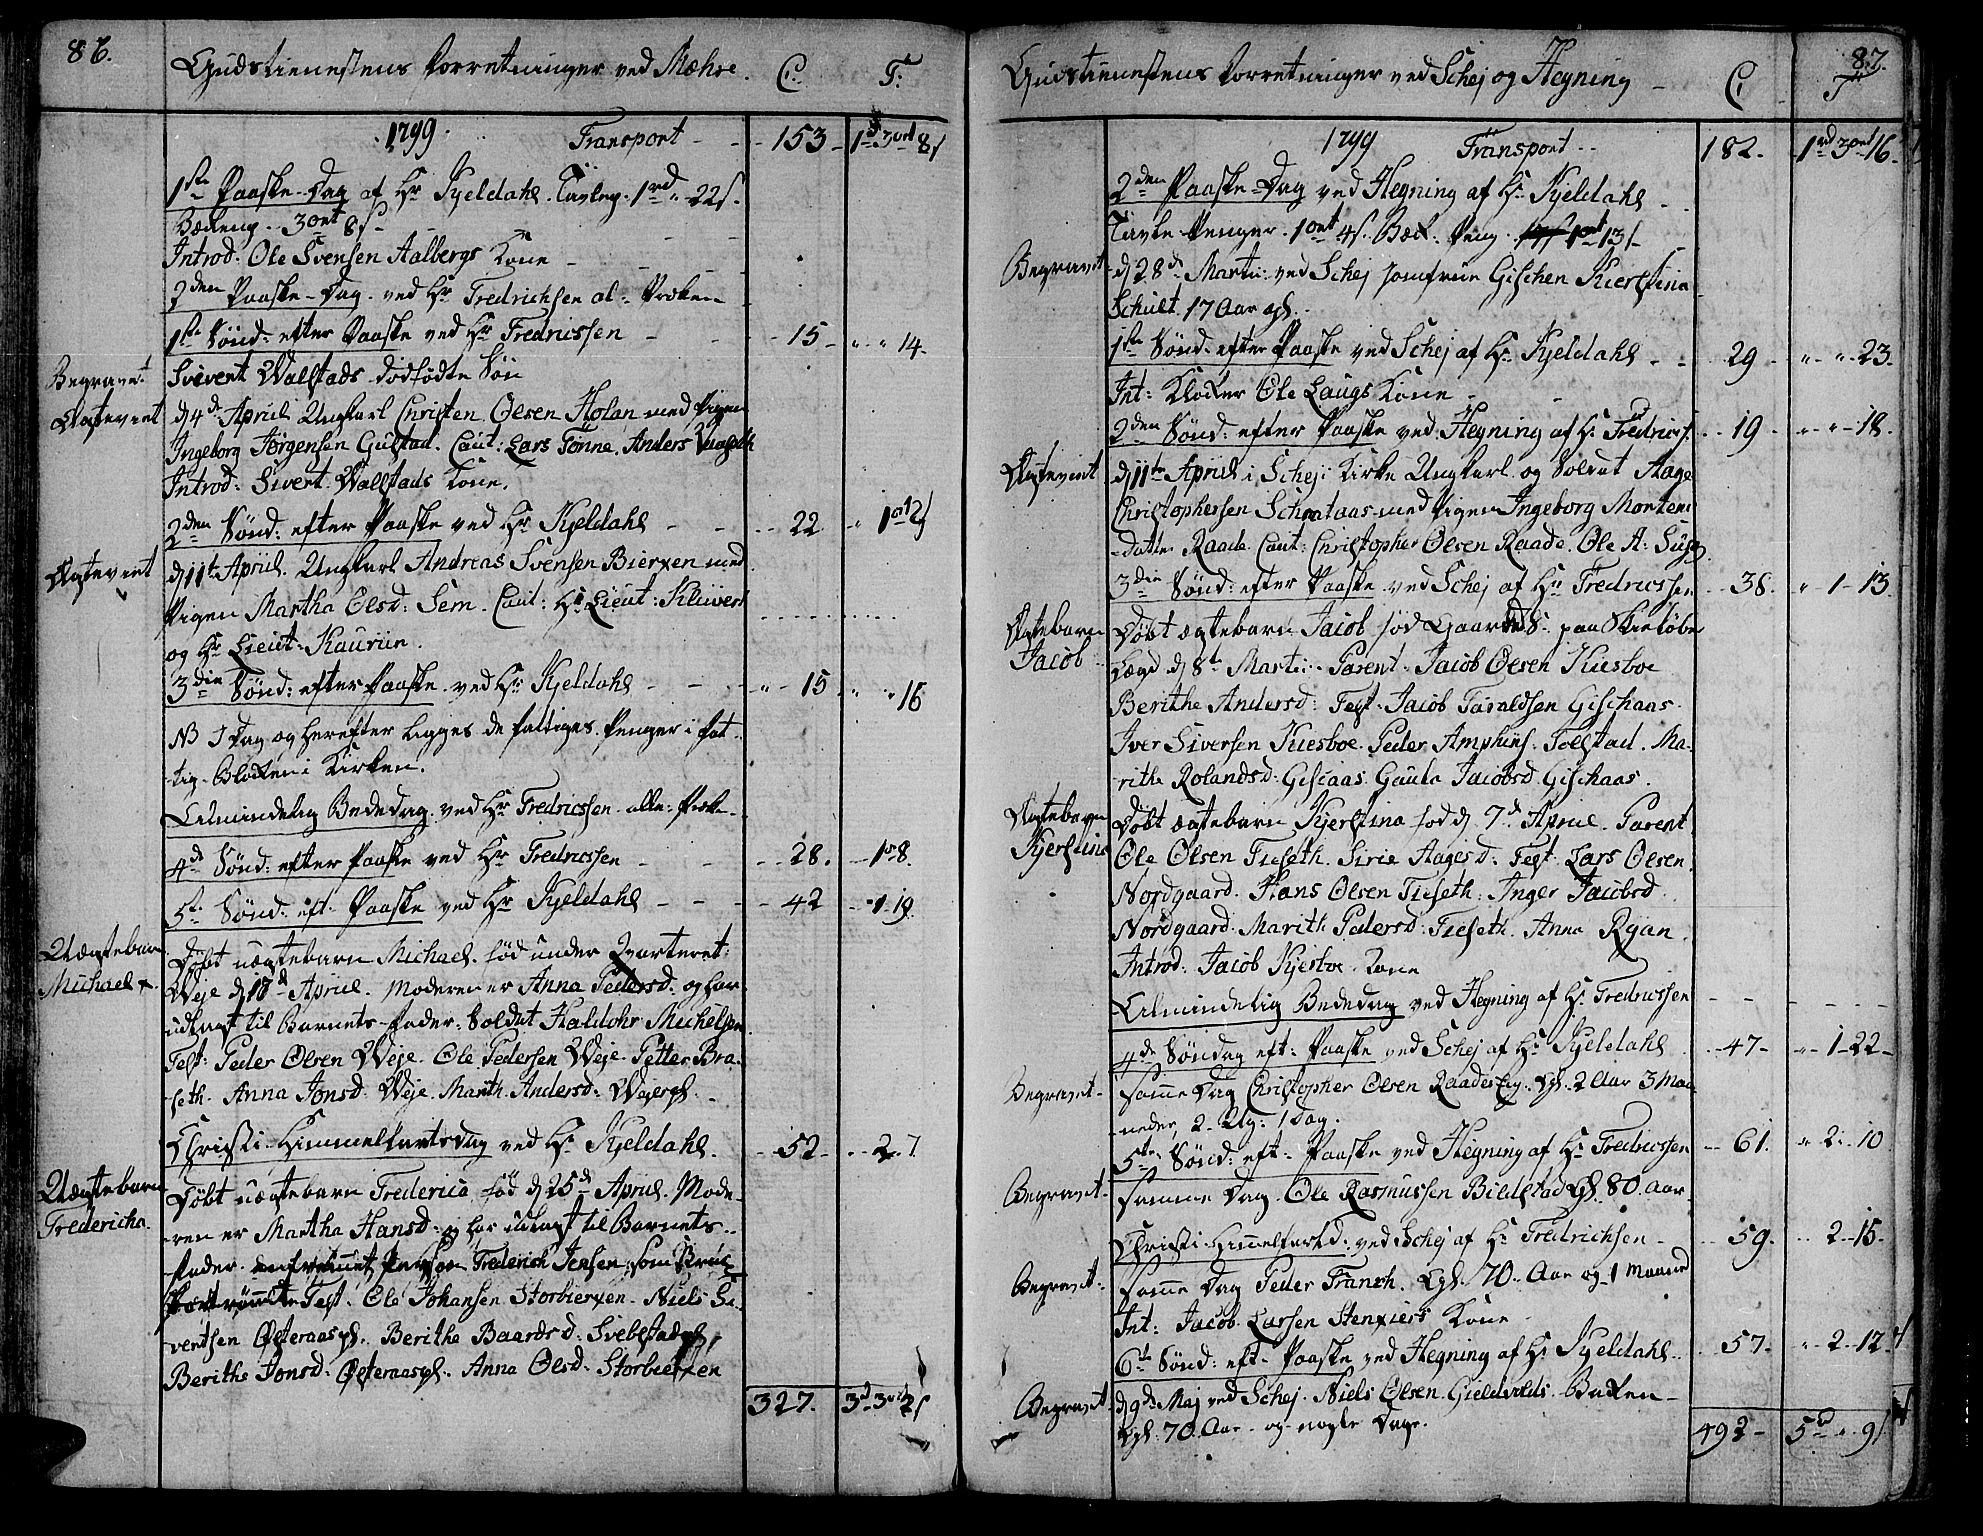 86.
Gudstienestens Forretninger ved Mæhre. C. T.
1799. Transport - - 153 - 1 - 3 ort 8 s
1ste Paaske-Dag af Hr Kjeldahl. Tavlep. 1 rd " 22 s.
Bækenp. 3 ort 8 s
Introd. Ole Svensen Aalbergs Kone
2den Paaske-Dag. ved Hr Fredrichsen al: Præken
1ste Sønd: efter Paaske ved Hr Fredricssen - 15 - " " 14.
Begravet. Sivert Walstads dødfødte Søn
Ægteviet d 4de Apriil Ungkarl Christen Olsen Holan med Pigen
Ingeborg Jørgensen Gulstad. Caut: Lars Tønne. Anders
Introd: Sivert Wallstads Kone.
2den Sønd: efter Paaske ved Hr Kjeldahl - - 22 " 1 ort 2 s
Ægteviet d 11te Apriil. Ungkarl Andreas Svensen Bierxen med
Pigen Martha Olsd: Sem. Caut: Hr Lieut: Klüwert
og Hr Lieut: Kauriin.
3die Sønd: efter Paaske ved Hr Kjeldahl - - - " - 15 " " 16
NB I Dag og herefter ligges de fattiges Penger i Fat-
tig-Blokken i Kirken.
Almindelig Bededag ved Hr Fredricssen. alle: Præke-
4de Sønd: efter Paaske ved Hr Fredricssen - - 28. - 1 " 8.
5te Sønd: eft. Paaske ved Hr Kjeldahl - - - 42 - 1 - 19.
Uægtebarn Døbt uægtebarn Michael. fød under Qvarteret:
Michael Weje d 18d Apriil. Moderen er Anna Pedersd. og har
udlagt til Barnets-Fader: Soldat Haldohr Michelsen
Test: Peder Olsen Weje. Ole Pedersen Weje. Petter Bra-
seth. Anna Jonsd: Weje. Marith Andersd: Wejerpl.
Christi Himmelfartsdag ved Hr Kjeldahl. - 52 - - 2 - 7.
Uægtebarn Døbt uægtebarn Frederica, fød d 25d Apriil. Mode-
Fredericha. ren er Martha Hansd: og har udlagt til Barnets-
Fader en frømmet Person Frederich Jensen, som
Test. Ole Johansen Storbierxen. Niels Si-
vertsen Østeraaspl. Berithe Baardsd: Svebstadpl
Berithe Jonsd: Østeraaspl. Anna Olsd: Storbierxen
327. 3 d 3 ort 2 s
87.
Gudstienestens Forretninger ved Schej og Hegning C. T.
1799 Transport - - 182. 1 rd 3 ort 16.
2den Paaske-Dag ved Hegning af Hr Kjeldahl
Tavle-Penger. 1 ort 4 s. Bæk: Peng. 1 ort 13 s
Begravet d 28d Martii: ved Schej Jomfrue Gischen Kierstina
Schult. 17 Aar gl.
1ste Sønd: efter Paaske ved Schej af Hr Kjeldahl - - 29 - " " - 23.
Int: Klokker Ole Laugs Kone
2den Sønd: efter Paaske ved Hegning af Hr Fredrics. - 19 - " " - 18.
Ægteviet d 11te Apriil i Schej: Kirke Ungkarl og Soldat Aage
Christophersen Schrataas med Pigen Ingeborg Mortens-
datter Raade. Caut: Christopher Olsen Raade. Ole A:
3die Sønd: efter Paaske ved Schej af Hr Fredricssen - 38. " - 1 - 13.
Ægtebarn Døbt ægtebarn Jacob fød paa Skieløber
Jacob Lægd d 8de Martii. Parent: Jacob Olsen Kiesboe
Berithe Andersd: Test: Jacob Taraldsen Gishaas.
Iver Siversen Kiesboe. Peder Amphins. Tolstad. Ma-
rithe Rolandsd: Giscaas Gaula Jacobsd Gischaas.
Ægtebarn Døbt ægtebarn Kjerstina fød d 7d Apriil. Parent
Kjerstina Ole Olsen Tieseth. Sirie Aagesd: Test: Lars Olsen
Nordgaard. Hans Olsen Tieseth. Inger Jacobsd
Nordgaard. Marith Pedersd: Tieseth. Anna Ryan.
Introd: Jacob Kjesboe. Kone
Almindelig Bededag ved Hegning af Hr Fredricssen - - - - - -
4de Søndag eft: Paaske ved Schej af Hr Kjeldahl. - 47 - " - 1 - 22 -
Begravet. samme Dag Christopher Olsen Raadesey. gl. 2 Aar 3 Maa-
neder, 2 Ug: 1 Dag.
5te Sønd: eft: Paaske ved Hegning af Hr Fredricssen - 61. " 2 - 10
Begravet. samme Dag. Ole Rasmussen Bildstad gl. 80. Aar.
Christi Himmelfartsd: ved Schej af Hr Fredrichsen - - 59. - 2 - 15.
Begravet. samme Dag Peder Franch. gl. 70. Aar og 1 Maaned
Int: Jacob Larsen Stenxiers Kone
6te Sønd: eft: Paaske ved Hegning af Hr Kjeldahl. - 57. " 2 - 12
Begravet d 9d Maj ved Schej. Niels Olsen Gieldvolds-Bakken
gl: 70. Aar og nogle Dage.
492 - 5 d " 9 s